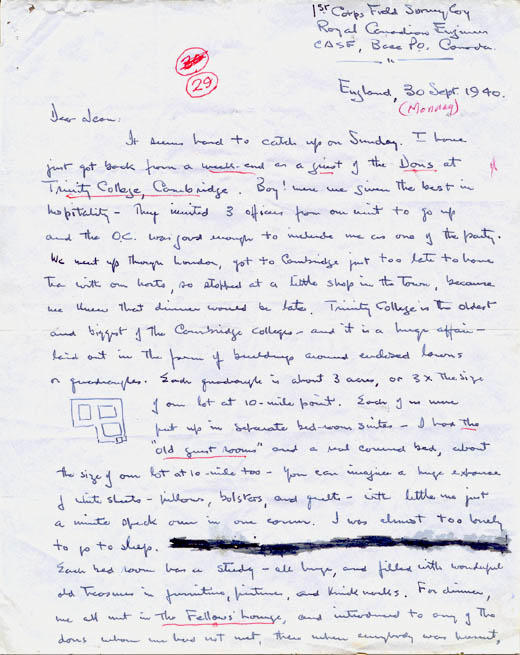 1st Corps Field Survey Coy
Royal Canadian Engineers
CASF, Base P.O. Canada.
"
30
29
England, 30 Sept 1940.
(Monday)
Dear Jean:
It seems hard to catch up on Sunday. I have
just got back from a week-end as a guest of the Dons at
Trinity College, Cambridge. Boy! were we given the best in
hospitality - They invited 3 officers from our unit to go up
and the O.C. was good enough to include me as one of the party.
We went up through London, got to Cambridge just too late to have
tea with our hosts, so stopped at a little shop in the town, because
we knew that dinner would be late. Trinity College is the oldest
and biggest of the Cambridge colleges - and it is a huge affair -
laid out in the form of buildings around enclosed lawns
or quadrangles. Each quadrangle is about 3 acres, or 3 x the size
of our lot at 10-mile point. Each of us were
put up in separate bed-room suites - I had the
"old guest rooms" and a real covered bed, about
the size of our lot at 10-mile too - You can imagine a huge expanse
of white sheets - pillows, bolsters, and quilt - with little me just
a minute speck over in one corner. I was almost too lonely
to go to sleep.
Each bed room has a study - all huge, and filled with wonderful
old treasures in furniture, pictures, and knick knacks. For dinner,
we all met in the Fellows' Lounge, and introduced to any of the
dons whom we had not met, then when everybody was present,